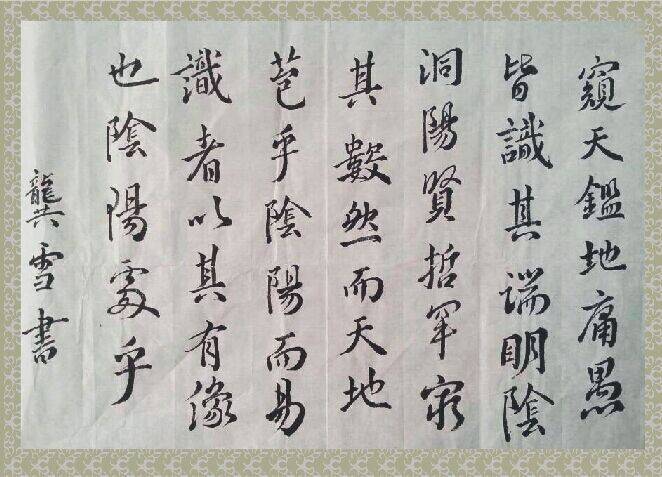 窺天鑑地庸愚
皆識其端明陰
洞陽賢哲罕窮
其數然而天地
苞乎陰陽而易
識者以其有像
也陰陽處乎
龔雪書